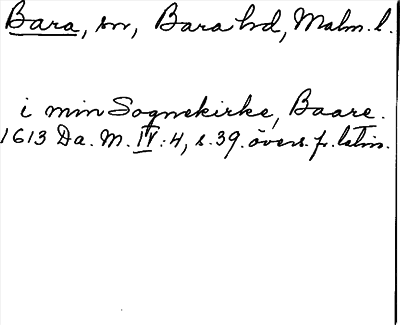 Bara, sn, Bara hd, Malm. l.
i min Sognekirke, Baare.
1613 Da. M. IV:4, s. 39. övers. fr. latin.